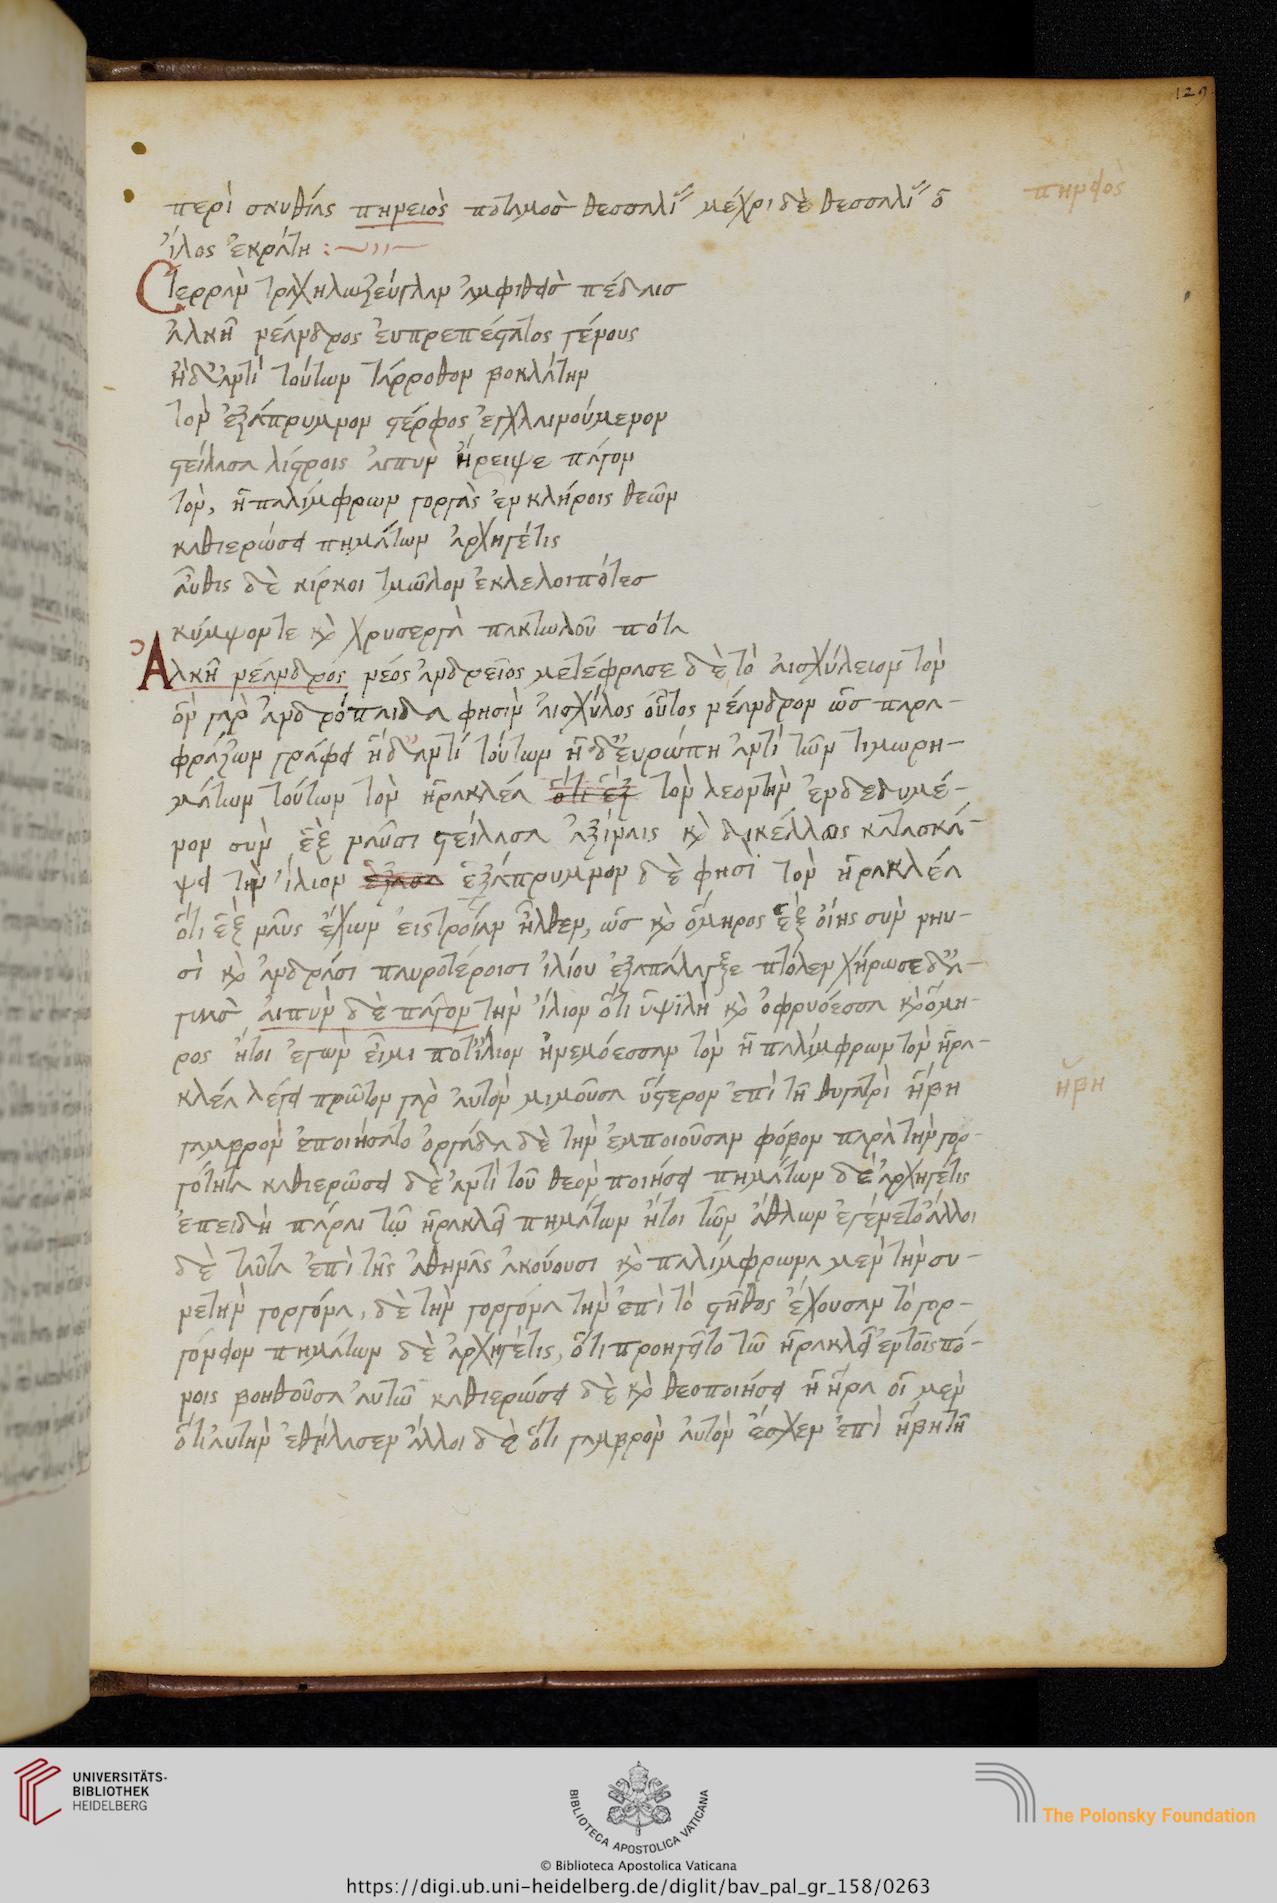 129
περὶ σκυθίας πηνειὸς ποταμὸσ θεσσαλί μέχρι δὲ θεσσαλί ὁ
πηνειος
ἴλος ἐκράτη :~
Cτερρὰν τραχήλω ζεύγλαν ἀμφιθεὶσ πέδαισ
ἀλκῆ νέανδρος ἐυπρεπέστατος γένους
ἡ δ' ἀντὶ τούτων τάρροθον βοηλάτην
τὸν ἑξάπρυμνον στέρφος ἐγχλαινούμενον
στείλασα λίστροις ἀιπὺν ἤρειψε πάγον
τὸν, ἡ παλίμφρων γοργὰς ἐν κλήροις θεῶν
καθιερώσει πημάτων ἀρχηγέτις
ἆυθις δὲ κίρκοι τμῶλον ἐκλελοιπότεσ
κύμψον τε καὶ χρυσεργὰ πακτωλοῦ ποτὰ
Ἀλκῆ νέανδρός νέος ἀνδρεῖος μετέφρασε δὲ τὸ ἀισχύλειον τὸν
ὃν γὰρ ἀνδρόπαιδα φησὶν ἀισχύλος οὗτος νέανδρον ὡσ παρα-
φράζων γράφει ἡ δ' ἀντί τούτων ἡ δ' ἐυρώπη ἀντὶ τῶν τιμωρη-
μάτων τούτων τὸν ἡρακλέα ὅτι ἓξ τὸν λεοντὴν ἐνδεδυμέ-
νον σὺν ἓξ ναῦσι στείλασα ἀξίναις καὶ δικέλλαις κατασκά-
ψει τὴν ἴλιον ἑξασα ἑξάπρυμνον δὲ φησὶ τὸν ἡρακλέα
ὅτι ἓξ ναῦς ἔχων ἐις τροίαν ἦλθεν, ὡσ καὶ ὅμηρος ἓξ ὄιης σὺν νηυ-
σὶ καὶ ἀνδράσι παυροτέροισι ἰλίου ἐξαπάλαξε πτόλεν χήρωσε δ' ἀ-
γυιὰσ ἀιπὺν δὲ πάγον τὴν ἴλιον ὅτι ὑψϊλὴ καὶ ὀφρυόεσσα καὶ ὅμη-
ρος ἤτοι ἐγὼν ἐῖμι ποτ' ἴλιον ἠνεμόεσσαν τὸν ἡ παλίμφρων τὸν ἡρα-
κλέα λέγει πρῶτον γὰρ ἀυτὸν μισοῦσα ὕστερον ἐπὶ τῆ θυγατρὶ ἥβη
ἥβη
γαμβρὸν ἐποιήσατο ὀργάδα δὲ τὴν ἐμποιοῦσαν φόβον παρὰ τὴν γορ-
γότητα καθιερῶσει δὲ ἀντὶ τοῦ θεὸν ποιήσει πημάτων δὲ ἀρχηγέτις
ἐπειδὴ πάραι τῶ ἡρακλεῖ πημάτων ἤτοι τῶν ἄθλων ἐγένετο ἄλλοι
δὲ ταῦτα ἐπὶ τῆς ἀθηνᾶς ἀκούουσι καὶ παλίμφρωνα μὲν τὴν συ-
νετὴν γοργόνα, δὲ τὴν γοργόνα τὴν ἐπὶ τὸ στῆθος ἔχουσαν τὸ γορ-
γόνειον πημάτων δὲ ἀρχηγέτις, ὅτι προηγεῖτο τῶ ἡρακλεῖ ἐν τοῖς πό-
νοις βοηθοῦσα ἀυτῶ καθιερώσει δὲ καὶ θεοποιήσει ἡ ἥρα οἱ μὲν
ὅτι ἀυτὴν ἐθήλασεν ἄλλοι δὲ ὅτι γαμβρὸν ἀυτὸν ἔσχεν ἐπὶ ἥβη τῆ
UNIVERSITÄTS-
BIBLIOTHEK
HEIDELBERG
BIBLIOTECA APOSTOLICA VATICANA
The Polonsky Foundation
© Biblioteca Apostolica Vaticana
https://digi.ub.uni-heidelberg.de/diglit/bav_pal_gr_158/0263